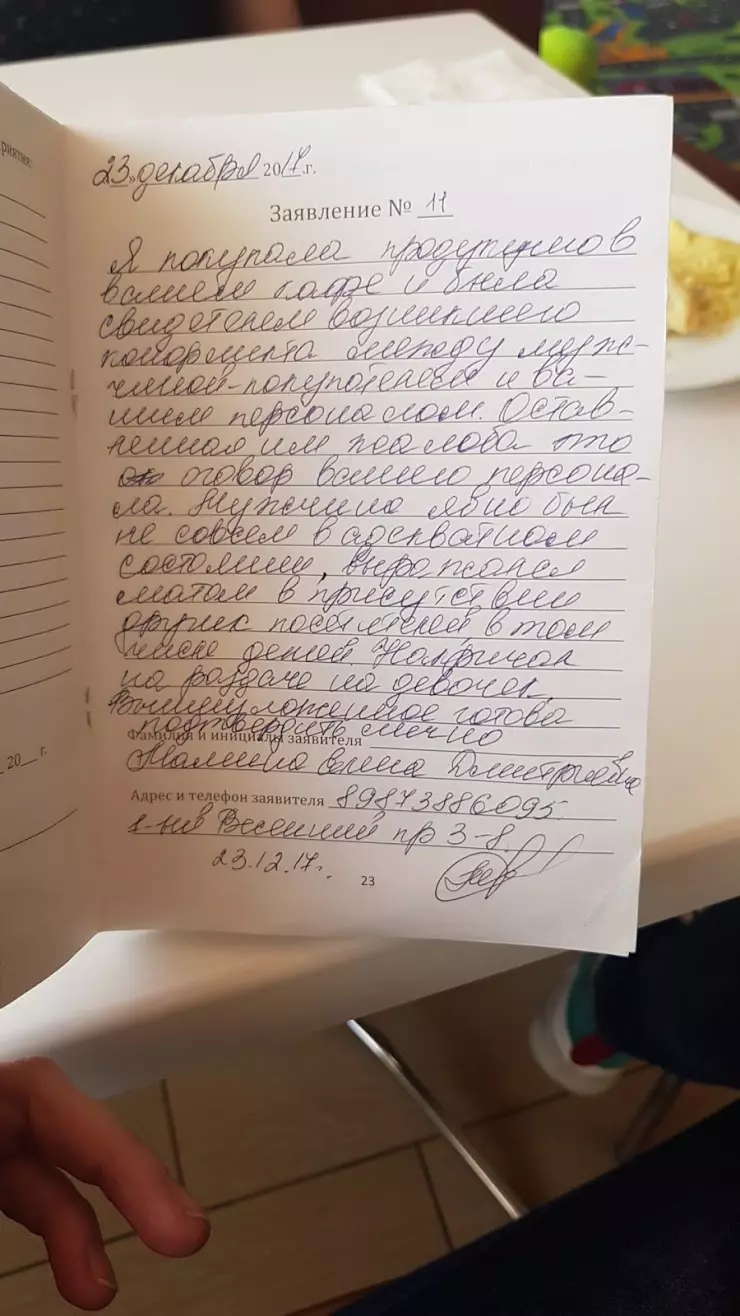 риятия:
23»декабря 2017.г.
Заявление № 11
Я покупала продукцию в
вашем кафе и была
свидетелем возникшего
конфликта между муж-
чиной-покупателем и ва-
шим персоналом. Остав-
ленная им жалоба это
оговор вашего персона-
ла. Мужчина явно был
не совсем в адекватном
состоянии, выражался
матом в присутствии
других посетителей, в том
числе детей. Накричал
на раздаче на девочек.
Вышеуложенное готова
подтвердить лично
Фамилия и инициалы заявителя
Малина Елена Дмитриевна
Адрес и телефон заявителя 89873886095
Весенний пр 3-8.
23.12.17г.
20__ г.
23